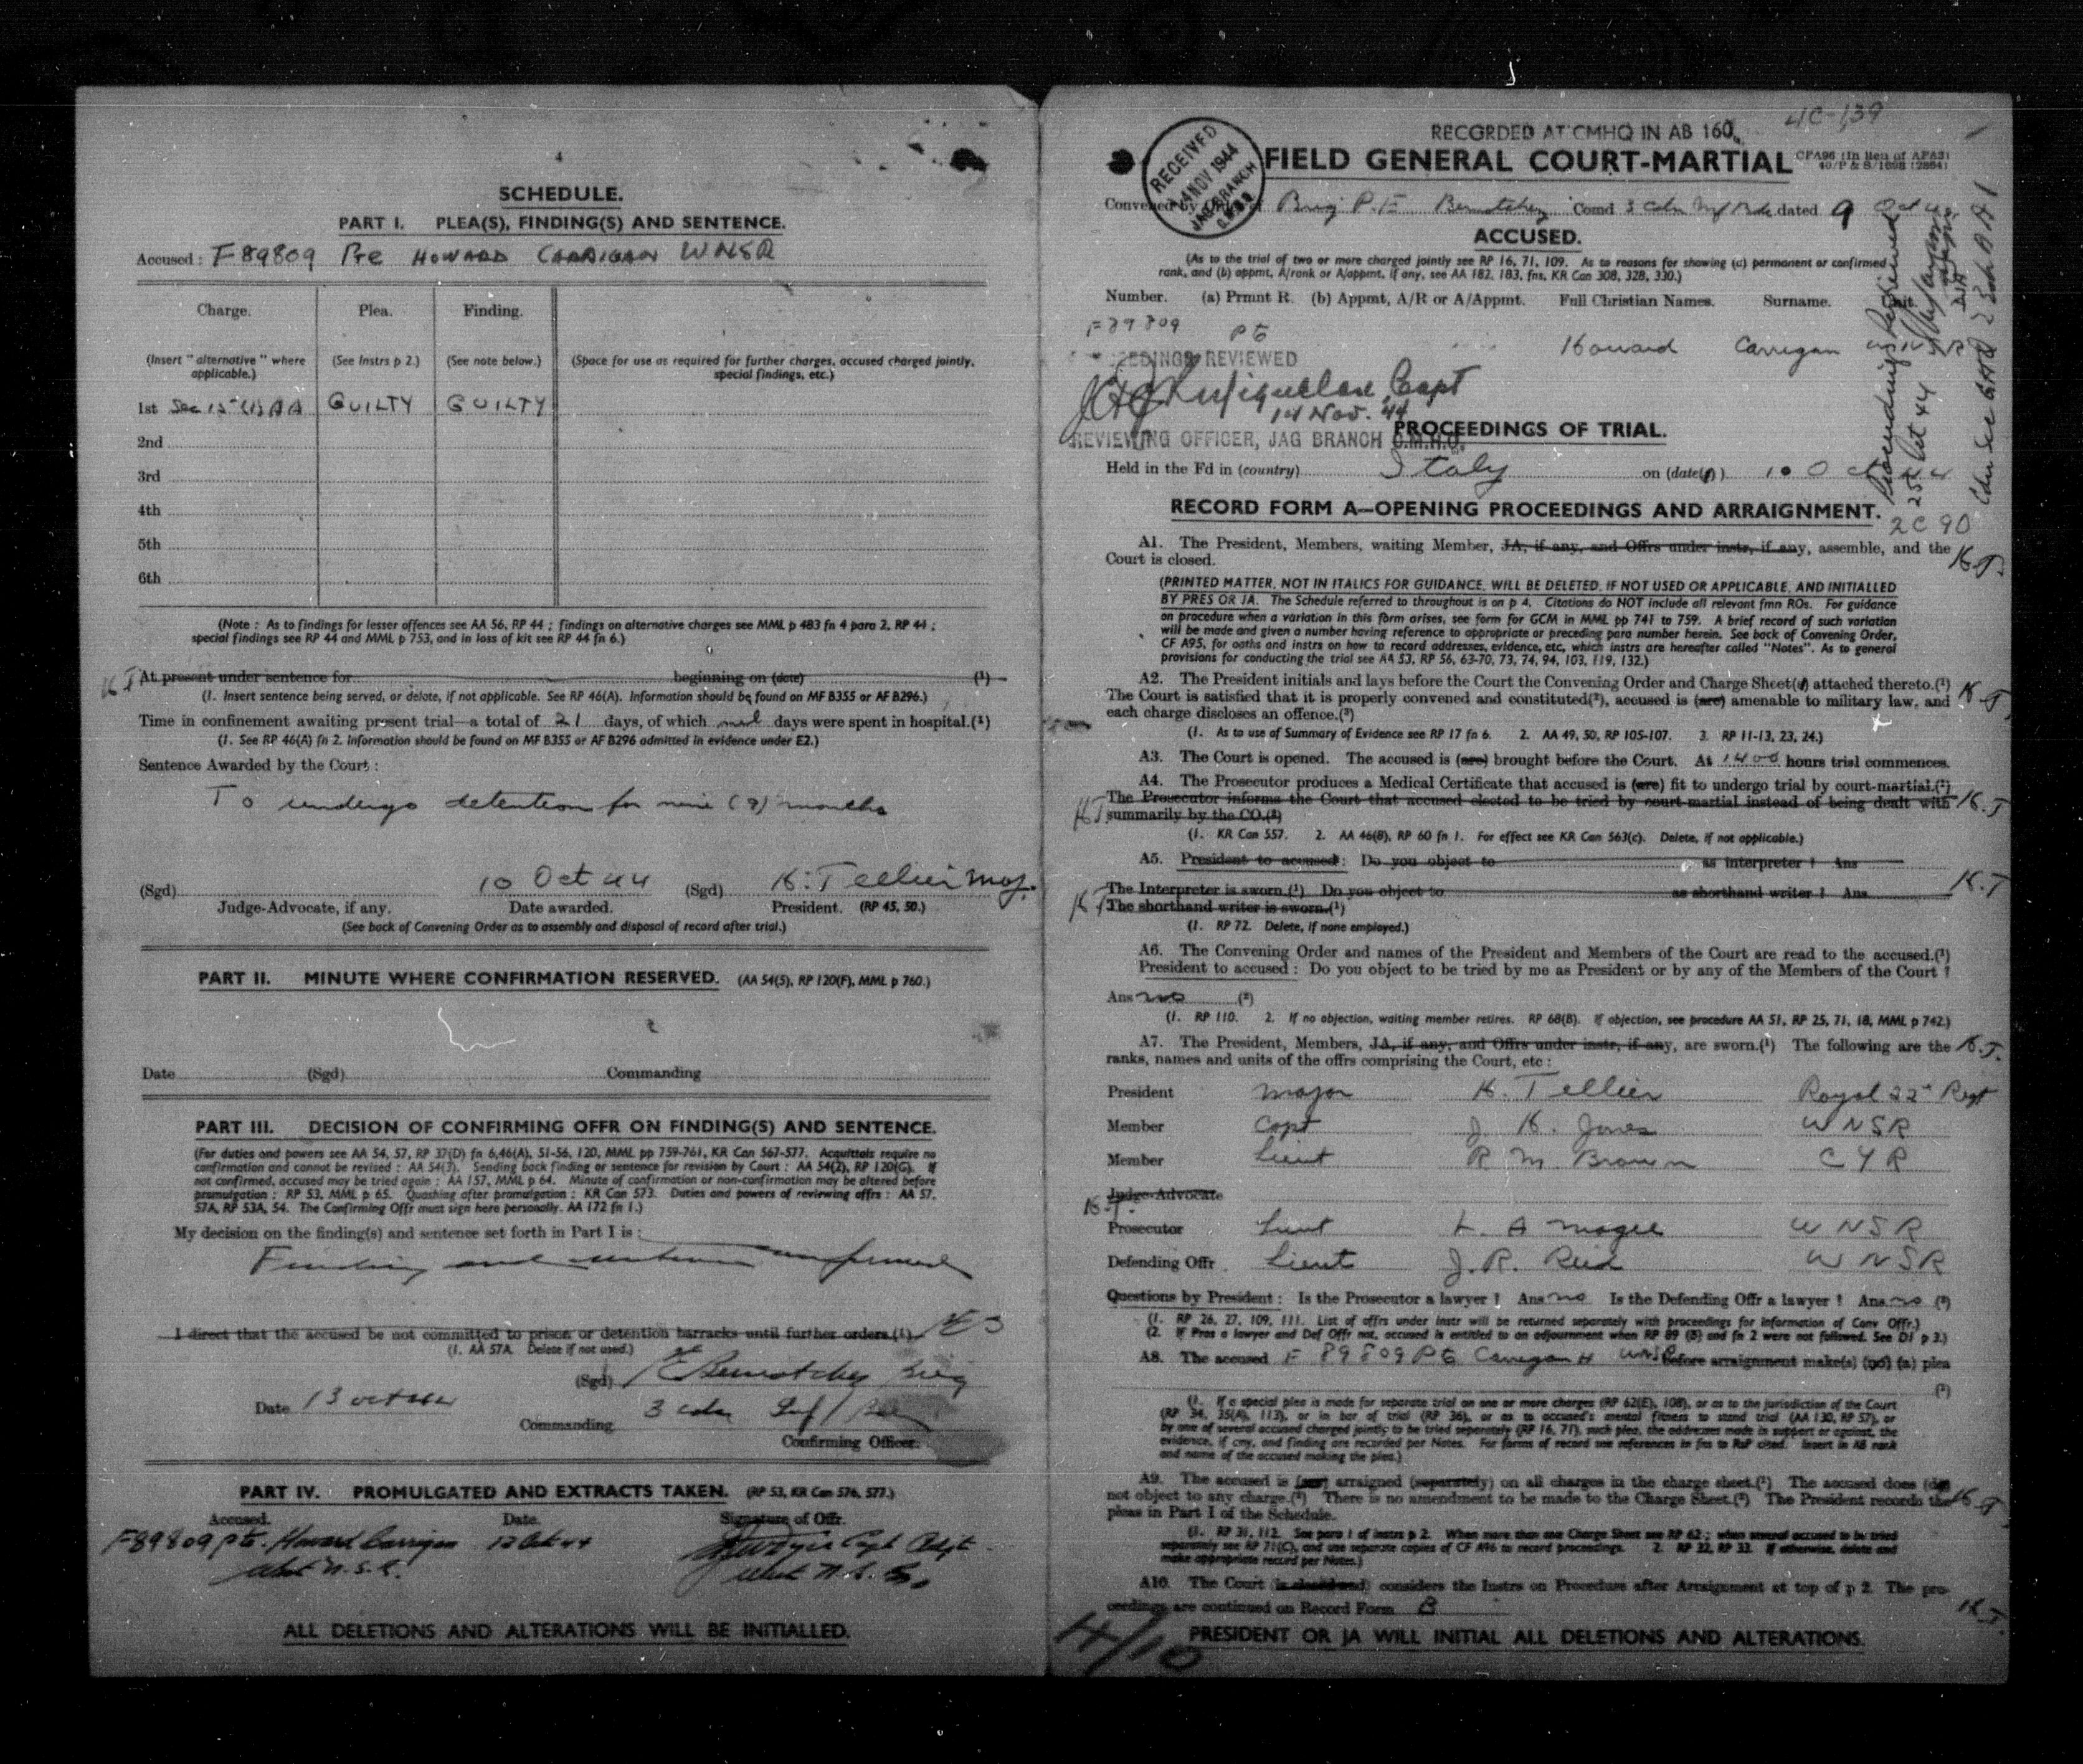 4
SCHEDULE.
PART I. PLEA(S), FINDING(S) AND SENTENCE.
Accused : F89809 Pte HOWARD CARRIGAN WNSR
Charge. Plea. Finding.
(Insert "alternative" where applicable.) (See Instrs p 2.) (See note below.) (Space for use as required for further charges, accused charged jointly, special findings, etc.)
1st Sec 15 (1) AA GUILTY GUILTY
2nd
3rd
4th
5th
6th
(Note : As to findings for lesser offences see AA 56, RP 44 ; findings on alternative charges see MML p 483 fn 4 para 2, RP 44 ;
special findings see RP 44 and MML p 753, and in loss of kit see RP 44 fn 6.)
KT At present under sentence for beginning on (date) (1)
(1. Insert sentence being served, or delete, if not applicable. See RP 46(A). Information should be found on MF B355 or AF B296.)
Time in confinement awaiting present trial—a total of 21 days, of which nil days were spent in hospital.(1)
(1. See RP 46(A) fn 2. Information should be found on MF B355 or AF B296 admitted in evidence under E2.)
Sentence Awarded by the Court :
To undergo detention for nine (9) months
(Sgd) 10 Oct 44 (Sgd) K. Tellier Maj.
Judge-Advocate, if any. Date awarded. President. (RP 45, 50.)
(See back of Convening Order as to assembly and disposal of record after trial.)
PART II. MINUTE WHERE CONFIRMATION RESERVED. (AA 54(5), RP 120(F), MML p 760.)
Date (Sgd) Commanding
PART III. DECISION OF CONFIRMING OFFR ON FINDING(S) AND SENTENCE.
(For duties and powers see AA 54, 57, RP 37(D) fn 6,46(A), 51-56, 120, MML pp 759-761, KR Can 567-577. Acquittals require no
confirmation and cannot be revised : AA 54(3). Sending back finding or sentence for revision by Court : AA 54(2), RP 120(G). If
not confirmed, accused may be tried again : AA 157, MML p 64. Minute of confirmation or non-confirmation may be altered before
promulgation : RP 53, MML p 65. Quashing after promulgation : KR Can 573. Duties and powers of reviewing offrs : AA 57,
57A, RP 53A, 54. The Confirming Offr must sign here personally. AA 172 fn 1.)
My decision on the finding(s) and sentence set forth in Part I is :
Finding and sentence confirmed
I direct that the accused be not committed to prison or detention barracks until further orders.(1)
(1. AA 57A. Delete if not used.)
(Sgd) Bernatchez Brig
Date 13 Oct 44 Commanding 3 Cdn Inf Bde
Confirming Officer.
PART IV. PROMULGATED AND EXTRACTS TAKEN. (RP 53, KR Can 576, 577.)
Accused. Date. Signature of Offr.
F89809 Pte. Howard Carrigan Oct 44 Capt Adjt
West N.S.R. West N.S.R.
ALL DELETIONS AND ALTERATIONS WILL BE INITIALLED.
4C-139
RECORDED AT CMHQ IN AB 160
RECEIVED
14 NOV 1944
JAG BRANCH
C.M.H.Q.
FIELD GENERAL COURT-MARTIAL
CFA96 (In lieu of AFA3)
40/P & S/1698 (2864)
Convened by Brig P.E Bernatchez Comd 3 Cdn Inf Bde dated 9 Oct
ACCUSED.
(As to the trial of two or more charged jointly see RP 16, 71, 109. As to reasons for showing (a) permanent or confirmed
rank, and (b) appmt, A/rank or A/appmt, if any, see AA 182, 183, fns, KR Can 308, 328, 330.)
Number. (a) Prmnt R. (b) Appmt, A/R or A/Appmt. Full Christian Names. Surname. Unit.
F89809 Pte Howard Carrigan
REVIEWED
Capt
14 Nov. 44
REVIEWING OFFICER, JAG BRANCH C.M.H.Q.
Proceedings
25 Oct 44
PROCEEDINGS OF TRIAL.
Held in the Fd in (country) Italy on (date(s)) 10 Oct 44
RECORD FORM A—OPENING PROCEEDINGS AND ARRAIGNMENT.
2C90
A1. The President, Members, waiting Member, JA, if any, and Offrs under instr, if any, assemble, and the K.T.
Court is closed.
(PRINTED MATTER, NOT IN ITALICS FOR GUIDANCE, WILL BE DELETED, IF NOT USED OR APPLICABLE, AND INITIALLED
BY PRES OR JA. The Schedule referred to throughout is on p 4. Citations do NOT include all relevant fmn ROs. For guidance
on procedure when a variation in this form arises, see form for GCM in MML pp 741 to 759. A brief record of such variation
will be made and given a number having reference to appropriate or preceding para number herein. See back of Convening Order,
CF A95, for oaths and instrs on how to record addresses, evidence, etc, which instrs are hereafter called "Notes". As to general
provisions for conducting the trial see AA 53, RP 56, 63-70, 73, 74, 94, 103, 119, 132.)
A2. The President initials and lays before the Court the Convening Order and Charge Sheet(s) attached thereto.(1)
The Court is satisfied that it is properly convened and constituted(2), accused is (are) amenable to military law, and K.T.
each charge discloses an offence.(3)
(1. As to use of Summary of Evidence see RP 17 fn 6. 2. AA 49, 50, RP 105-107. 3. RP 11-13, 23, 24.)
A3. The Court is opened. The accused is (are) brought before the Court. At 1400 hours trial commences.
A4. The Prosecutor produces a Medical Certificate that accused is (are) fit to undergo trial by court-martial.(1)
The Prosecutor informs the Court that accused elected to be tried by court-martial instead of being dealt with K.T
KT summarily by the CO.(2)
(1. KR Can 557. 2. AA 46(8), RP 60 fn 1. For effect see KR Can 563(c). Delete, if not applicable.)
A5. President to accused : Do you object to as interpreter ? Ans
The Interpreter is sworn.(1) Do you object to as shorthand writer ? Ans K.T
KT The shorthand writer is sworn.(1)
(1. RP 72. Delete, if none employed.)
A6. The Convening Order and names of the President and Members of the Court are read to the accused.(1)
President to accused : Do you object to be tried by me as President or by any of the Members of the Court ?
Ans no (2)
(1. RP 110. 2. If no objection, waiting member retires. RP 68(B). If objection, see procedure AA 51, RP 25, 71, 18, MML p 742.)
A7. The President, Members, JA, if any, and Offrs under instr, if any, are sworn.(1) The following are the K.T.
ranks, names and units of the offrs comprising the Court, etc :
President Major K. Tellier Royal 22nd Regt
Member Capt J. K. Jones WNSR
Member Lieut R M. Brown CYR
Judge-Advocate
K.T.
Prosecutor Lieut L. A Magee WNSR
Defending Offr Lieut J. R. Reid WNSR
Questions by President : Is the Prosecutor a lawyer ? Ans no Is the Defending Offr a lawyer ? Ans no (2)
(1. RP 26, 27, 109, 111. List of offrs under instr will be returned separately with proceedings for information of Conv Offr.)
(2. If Pros a lawyer and Def Offr not, accused is entitled to an adjournment when RP 89 (B) and fn 2 were not followed. See D1 p 3.)
A8. The accused F 89809 Pte Carrigan H WNSR before arraignment make(s) (no) (a) plea
(1)
(1. If a special plea is made for separate trial on one or more charges (RP 62(E), 108), or as to the jurisdiction of the Court
(RP 34, 35(A), 113), or in bar of trial (RP 36), or as to accused's mental fitness to stand trial (AA 130, RP 57), or
by one of several accused charged jointly to be tried separately (RP 16, 71), such plea, the addresses made in support or against, the
evidence, if any, and finding are recorded per Notes. For forms of record see references in fns to RsP cited. Insert in A8 rank
and name of the accused making the plea.)
A9. The accused is (are) arraigned (separately) on all charges in the charge sheet.(1) The accused does (do)
not object to any charge.(2) There is no amendment to be made to the Charge Sheet.(2) The President records the K.T.
pleas in Part I of the Schedule.
(1. RP 31, 112. See para 1 of instrs p 2. When more than one Charge Sheet see RP 62 ; when several accused to be tried
separately see RP 71(C), and use separate copies of CF A96 to record proceedings. 2. RP 32, RP 33. If otherwise, delete and
make appropriate record per Notes.)
A10. The Court (is closed and) considers the Instrs on Procedure after Arraignment at top of p 2. The pro-
ceedings are continued on Record Form B K.T.
4/10
PRESIDENT OR JA WILL INITIAL ALL DELETIONS AND ALTERATIONS.